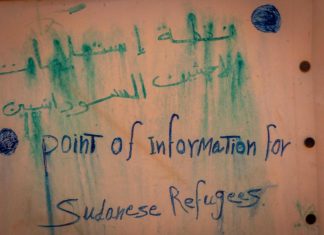 نقطة إستعلامات
لاجئين السودانيين
point of Information for
Sudanese Refugees.